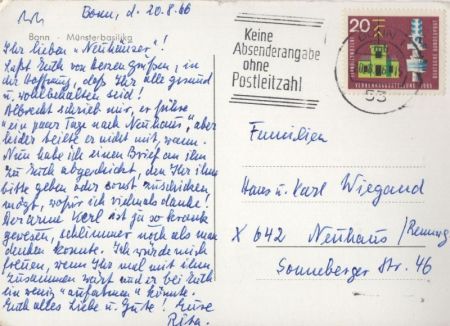 Bonn, d. 20.8.66
Bonn - Münsterbasilika
Ihr lieben "Neuhäuser"!
Laßt Euch von Herzen grüßen, in
der Hoffnung, daß Ihr alle gesund
u. wohlbehalten seid!
Albrecht schrieb mir, er führe
"ein paar Tage nach Neuhaus", aber
leider teilte er nicht mit, wann.
Nun habe ich einen Brief an ihn
zu Euch abgeschickt, den Ihr ihm
bitte geben oder sonst zuschicken
mögt, wofür ich vielmals danke!
Der arme Kerl ist ja so krank
gewesen, schlimmer noch als man
denken konnte. Ich würde mich
freuen, wenn Ihr mal mit ihm
zusammen wart und er bei Euch
ein wenig "aufatmen" könnte.
Euch alles Liebe u. Gute! Eure
Keine
Absenderangabe
ohne
Postleitzahl
20
53
Familien
Hans u. Karl Wiegand
X 642 Neuhaus/Rennwg
Sonneberger Str. 46